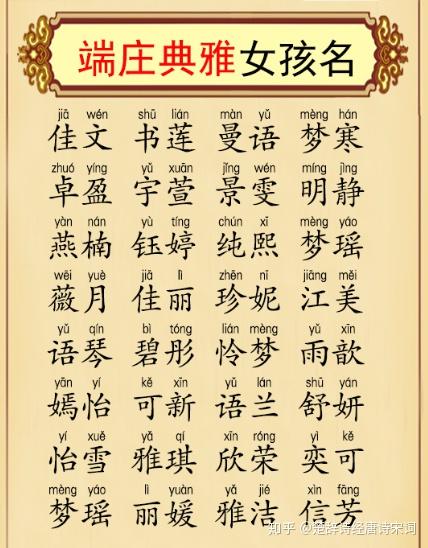 端庄典雅女孩名
jiā wén shū lián màn yǔ mèng hán
佳文 书莲 曼语 梦寒
zhuó yíng yǔ xuān jǐng wén míng jìng
卓盈 宇萱 景雯 明静
yàn nán yù tíng chún xī mèng yáo
燕楠 钰婷 纯熙 梦瑶
wēi yuè jiā lì zhēn nī jiāng měi
薇月 佳丽 珍妮 江美
yǔ qín bì tóng lián mèng yǔ xīn
语琴 碧彤 怜梦 雨歆
yān yí kě xīn yǔ lán shū yán
嫣怡 可新 语兰 舒妍
yí xuě yǎ qí xīn róng yì kě
怡雪 雅琪 欣荣 奕可
mèng yáo lì yuàn yǎ jié xìn fāng
梦瑶 丽媛 雅洁 信芳
知乎 @楚辞诗经唐诗宋词